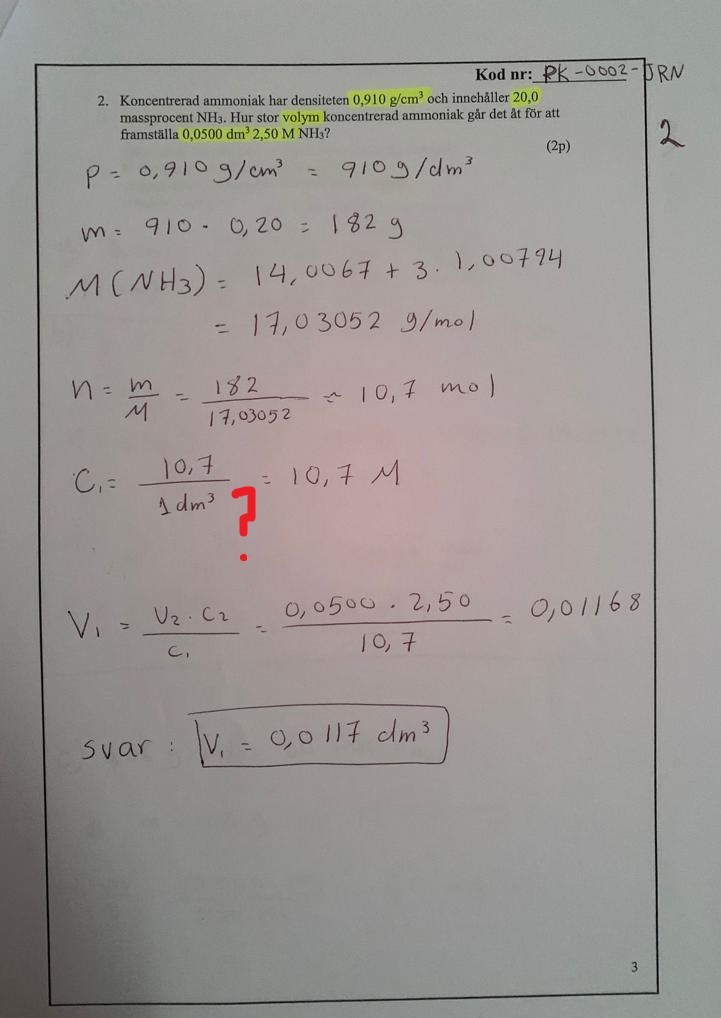 Kod nr: PK-0002-JRN
2
2. Koncentrerad ammoniak har densiteten 0,910 g/cm³ och innehåller 20,0
massprocent NH₃. Hur stor volym koncentrerad ammoniak går det åt för att
framställa 0,0500 dm³ 2,50 M NH₃?
(2p)
ρ = 0,910 g/cm³ = 910 g/dm³
m = 910 · 0,20 = 182 g
M(NH3) = 14,0067 + 3 · 1,00794
= 17,03052 g/mol
n = m/M = 182/17,03052 ≈ 10,7 mol
C₁ = 10,7/1 dm³ = 10,7 M
?
V₁ = V₂ · C₂/C₁ = 0,0500 · 2,50/10,7 = 0,01168
svar : V₁ = 0,0117 dm³
3